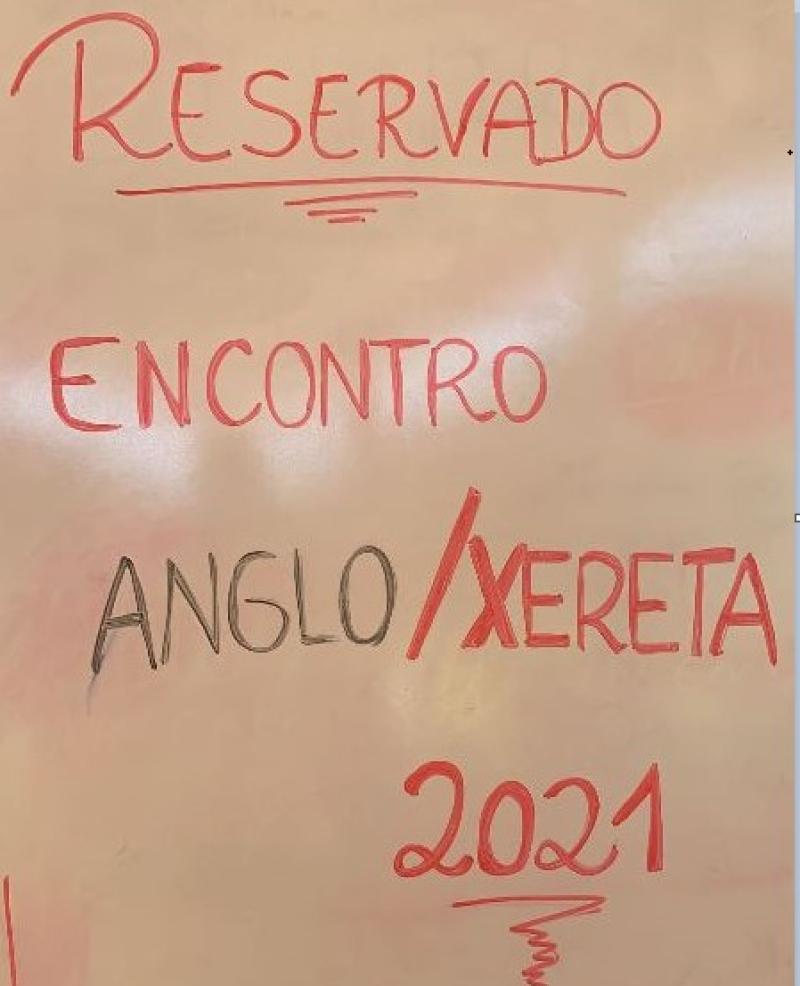 RESERVADO
ENCONTRO
ANGLO/XERETA
2021